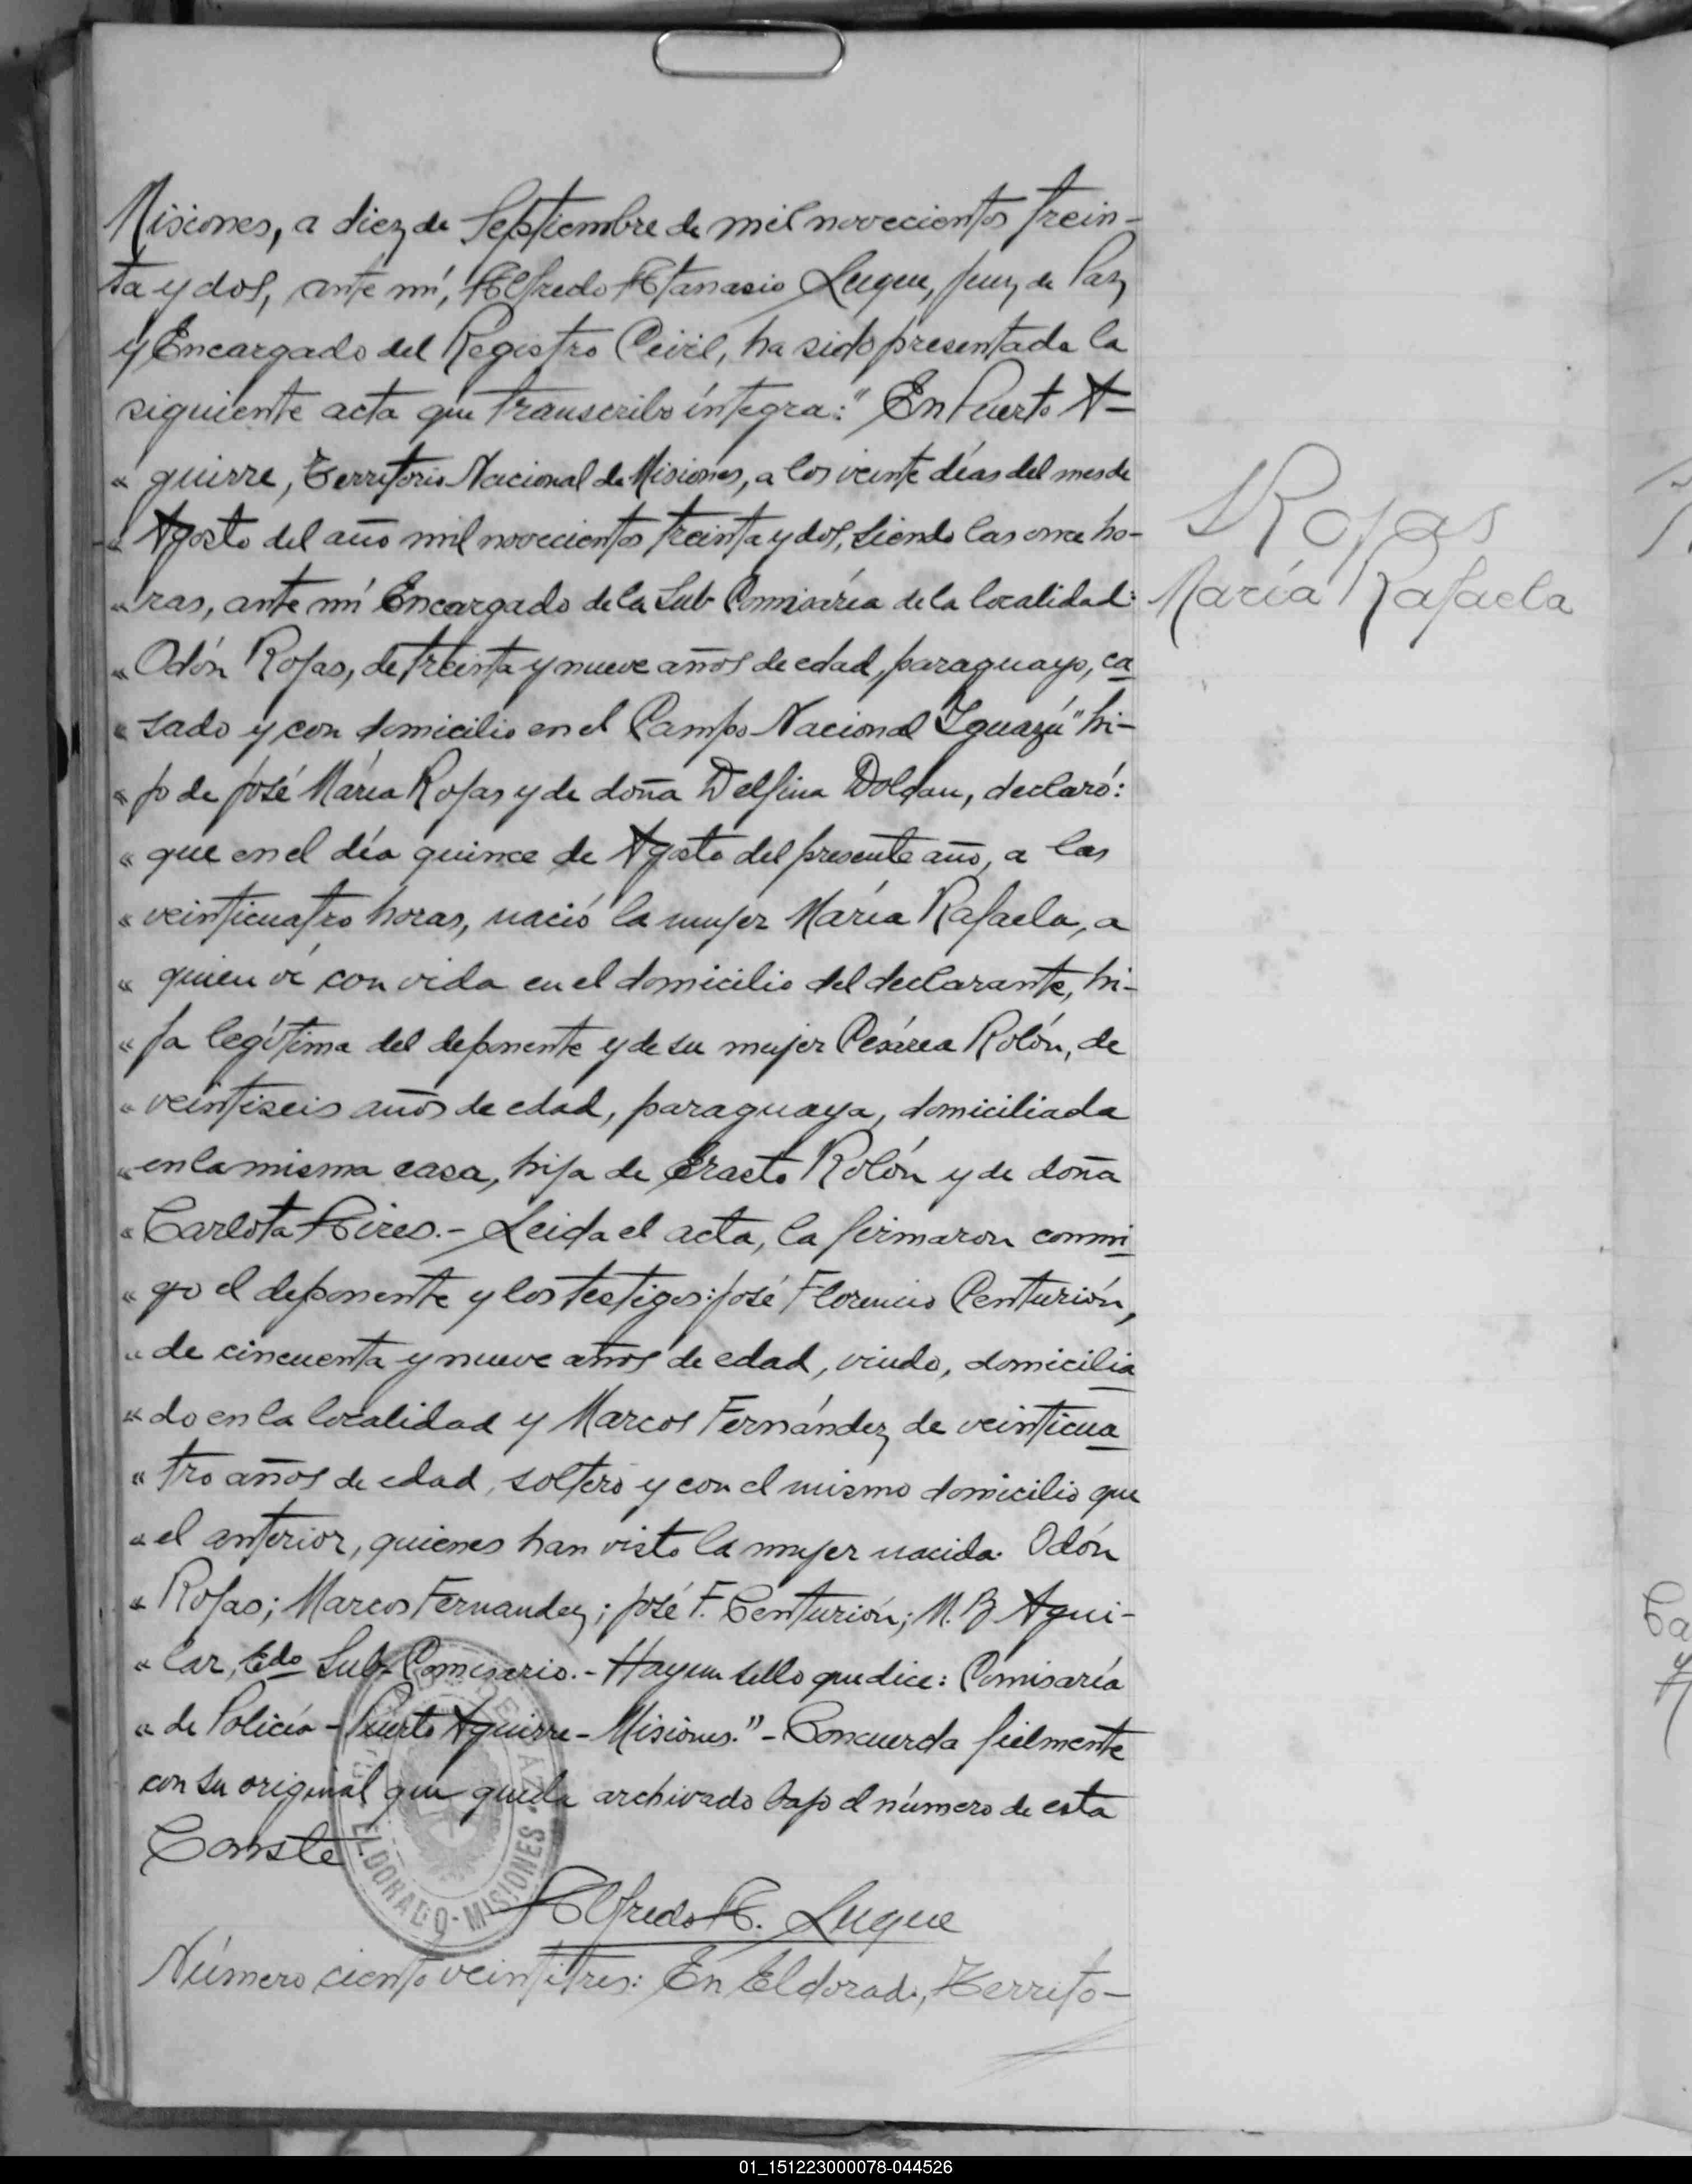 Misiones, a diez de Septiembre de mil novecientos trein-
ta y dos, ante mí, Alfredo Atanasio Luque, Juez de Paz
y Encargado del Registro Civil, ha sido presentada la
siguiente acta que transcribo íntegra: "En Puerto A-
" guirre, Territorio Nacional de Misiones, a los veinte días del mes de
" Agosto del año mil novecientos treinta y dos, siendo las once ho-
" ras, ante mí Encargado de la Sub Comisaría de la localidad:
" Odón Rojas, de treinta y nueve años de edad, paraguayo, ca
" sado y con domicilio en el Campo Nacional Iguazú" hi-
" jo de José María Rojas y de doña Delfina Doldan, declaró:
" que en el día quince de Agosto del presente año, a las
" veinticuatro horas, nació la mujer María Rafaela, a
" quien ví con vida en el domicilio del declarante, hi-
" ja legítima del deponente y de su mujer Cesárea Rolón, de
" veintiseis años de edad, paraguaya, domiciliada
" en la misma casa, hija de Erasto Rolón y de doña
" Carlota Aires.- Leida el acta, la firmaron conmi
" go el deponente y los testigos: José Florencio Centurión,
" de cincuenta y nueve años de edad, viudo, domicilia
" do en la localidad y Marcos Fernández de veinticua
" tro años de edad, soltero y con el mismo domicilio que
" el anterior, quienes han visto la mujer nacida. Odón
" Rojas; Marcos Fernandez; José F. Centurión; M. B Agui-
" lar, Edo Sub-Comisario.- Hay un sello que dice: Comisaría
" de Policía - Puerto Aguirre - Misiones." - Concuerda fielmente
con su original que queda archivado bajo el número de esta
Conste
Alfredo A. Luque
Número ciento veintitres: En Eldorado, Territo-
Rojas
María Rafaela
DE PAZ
ELDORADO - MISIONES
01_151223000078-044526